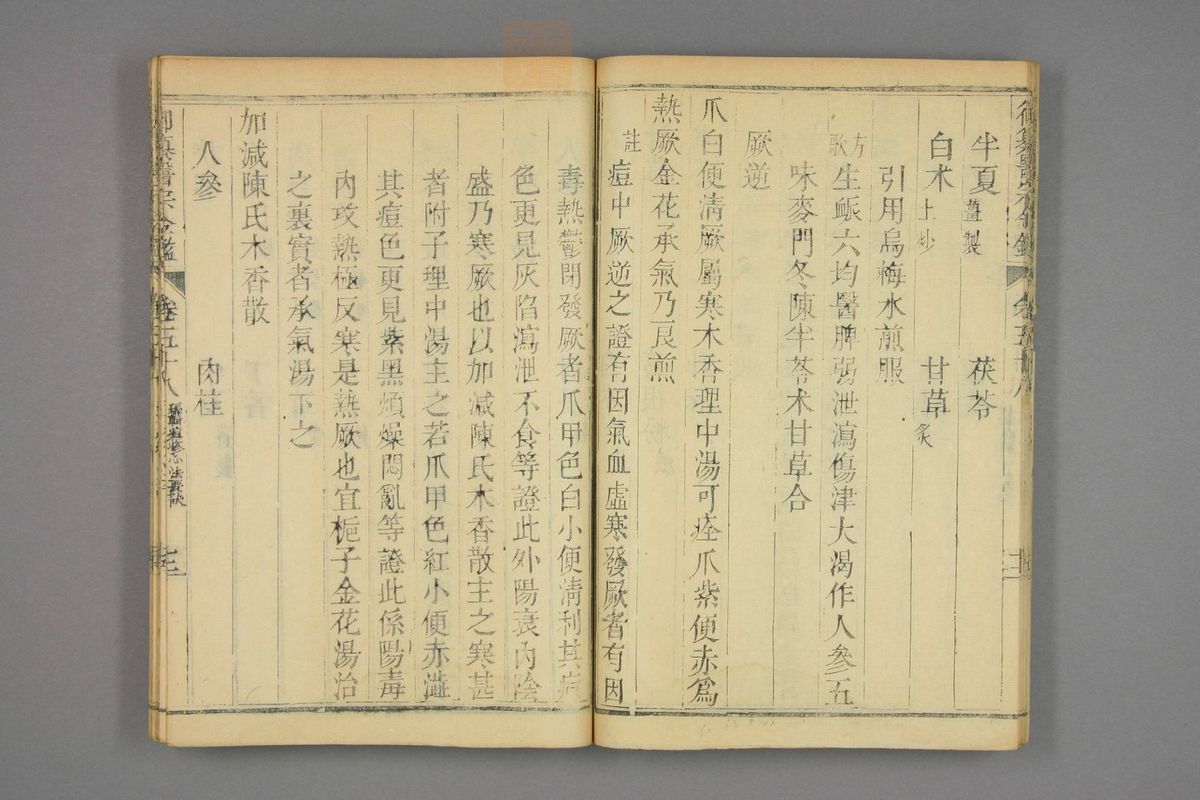 半夏薑製　茯苓
白朮土炒　甘草炙
引用烏梅水煎服
方歌　生脈六均醫脾弱泄瀉傷津大渴作人參五
味麥門冬陳半苓朮甘草合
厥逆
爪白便清厥屬寒木香理中湯可痊爪紫便赤爲
熱厥金花承氣乃良煎
註　痘中厥逆之證有因氣血虛寒發厥者有因
毒熱鬱閉發厥者爪甲色白小便清利其痘
色更見灰陷瀉泄不食等證此外陽衰內陰
盛乃寒厥也以加減陳氏木香散主之寒甚
者附子理中湯主之若爪甲色紅小便赤澁
其痘色更見紫黑煩燥悶亂等證此係陽毒
內攻熱極反寒是熱厥也宜梔子金花湯治
之裏實者承氣湯下之
加減陳氏木香散
人參　肉桂
御纂醫宗金鑑　卷五十八